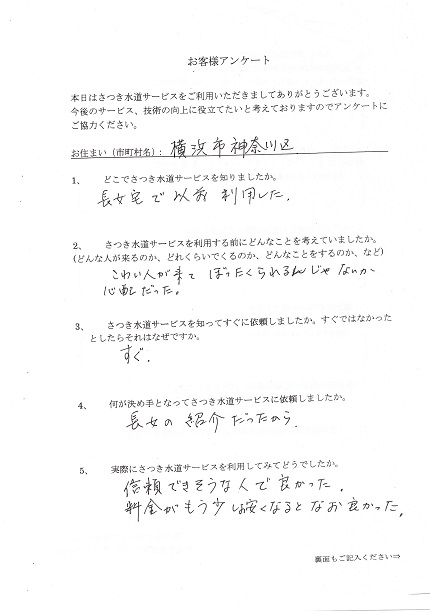 お客様アンケート
本日はさつき水道サービスをご利用いただきましてありがとうございます。
今後のサービス、技術の向上に役立てたいと考えておりますのでアンケートに
ご協力ください。
お住まい（市町村名）: 横浜市神奈川区
1、 どこでさつき水道サービスを知りましたか。
長女宅で以前利用した.
2、 さつき水道サービスを利用する前にどんなことを考えていましたか。
（どんな人が来るのか、どれくらいでくるのか、どんなことをするのか、など）
こわい人が来て ぼったくられるんじゃないか
心配だった。
3、 さつき水道サービスを知ってすぐに依頼しましたか。すぐではなかった
としたらそれはなぜですか。
すぐ.
4、 何が決め手となってさつき水道サービスに依頼しましたか。
長女の紹介だったから.
5、 実際にさつき水道サービスを利用してみてどうでしたか。
信頼できそうな人で良かった.
料金がもう少し安くなるとなお良かった.
裏面もご記入ください⇒